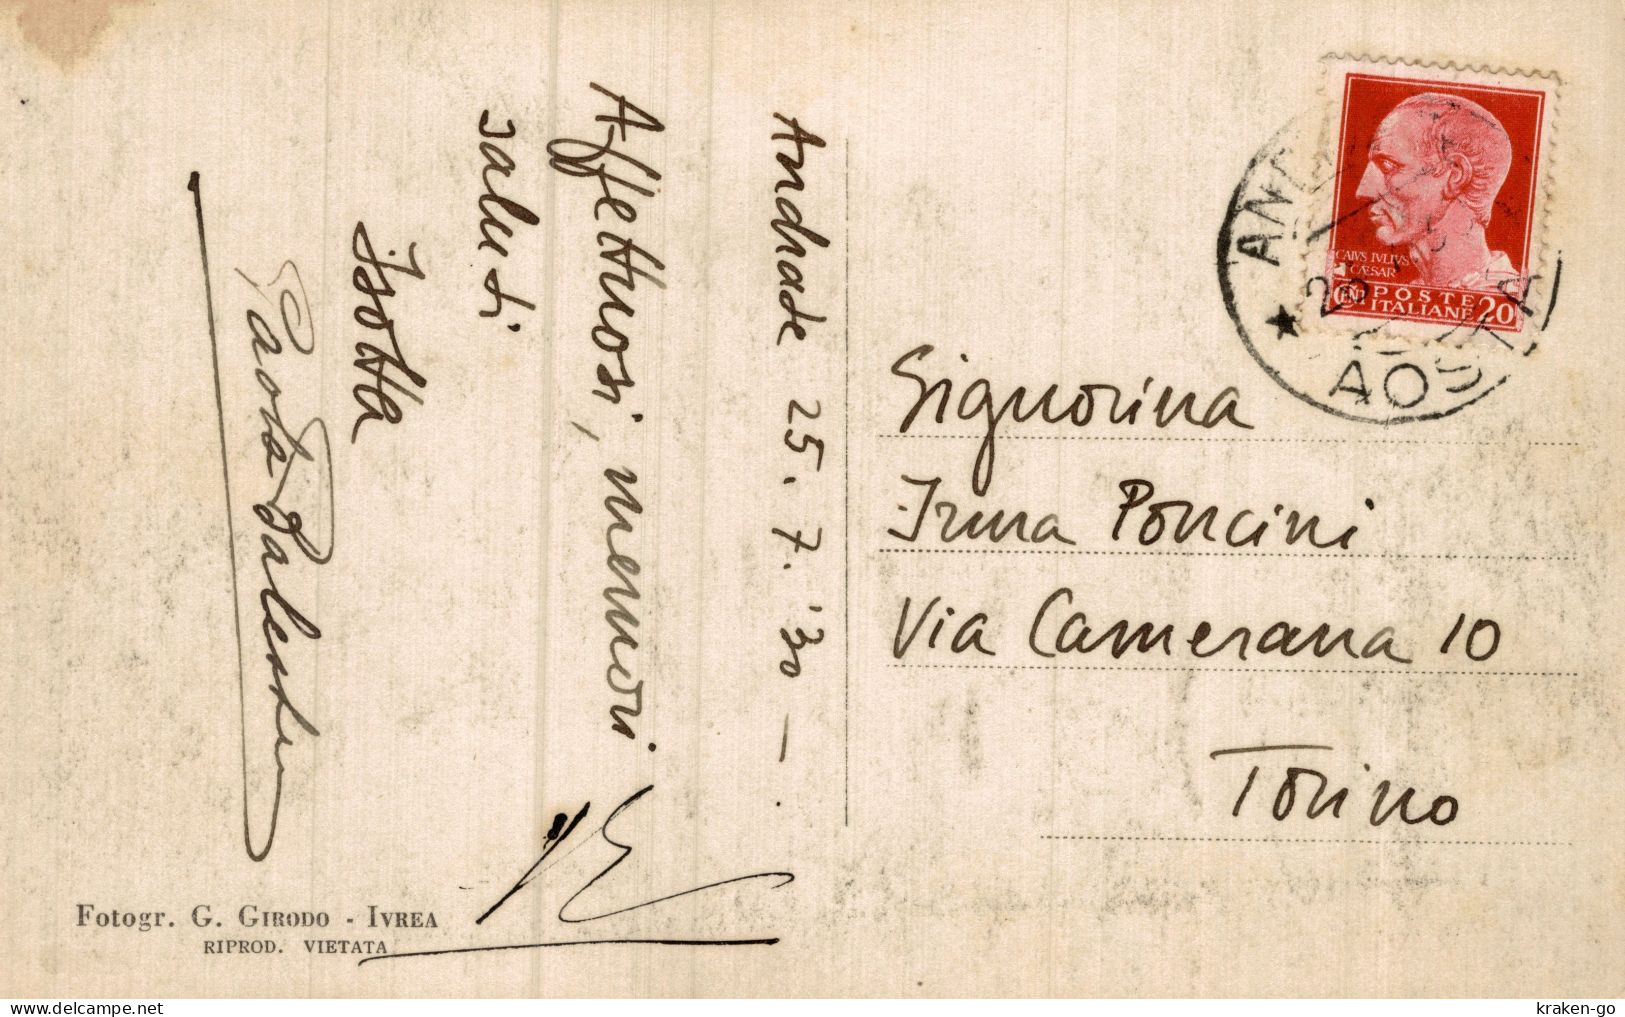 Andrade 25. 7. '30 -
Affettuosi, memori
saluti
Isotta
Paola Palestrino
Fotogr. G. GIRODO - IVREA
RIPROD. VIETATA
CAIVS IVLIVS
CÆSAR
CENT
POSTE
ITALIANE 20
AOSTA
Signorina
Irma Poncini
Via Camerana 10
Torino
kraken-go